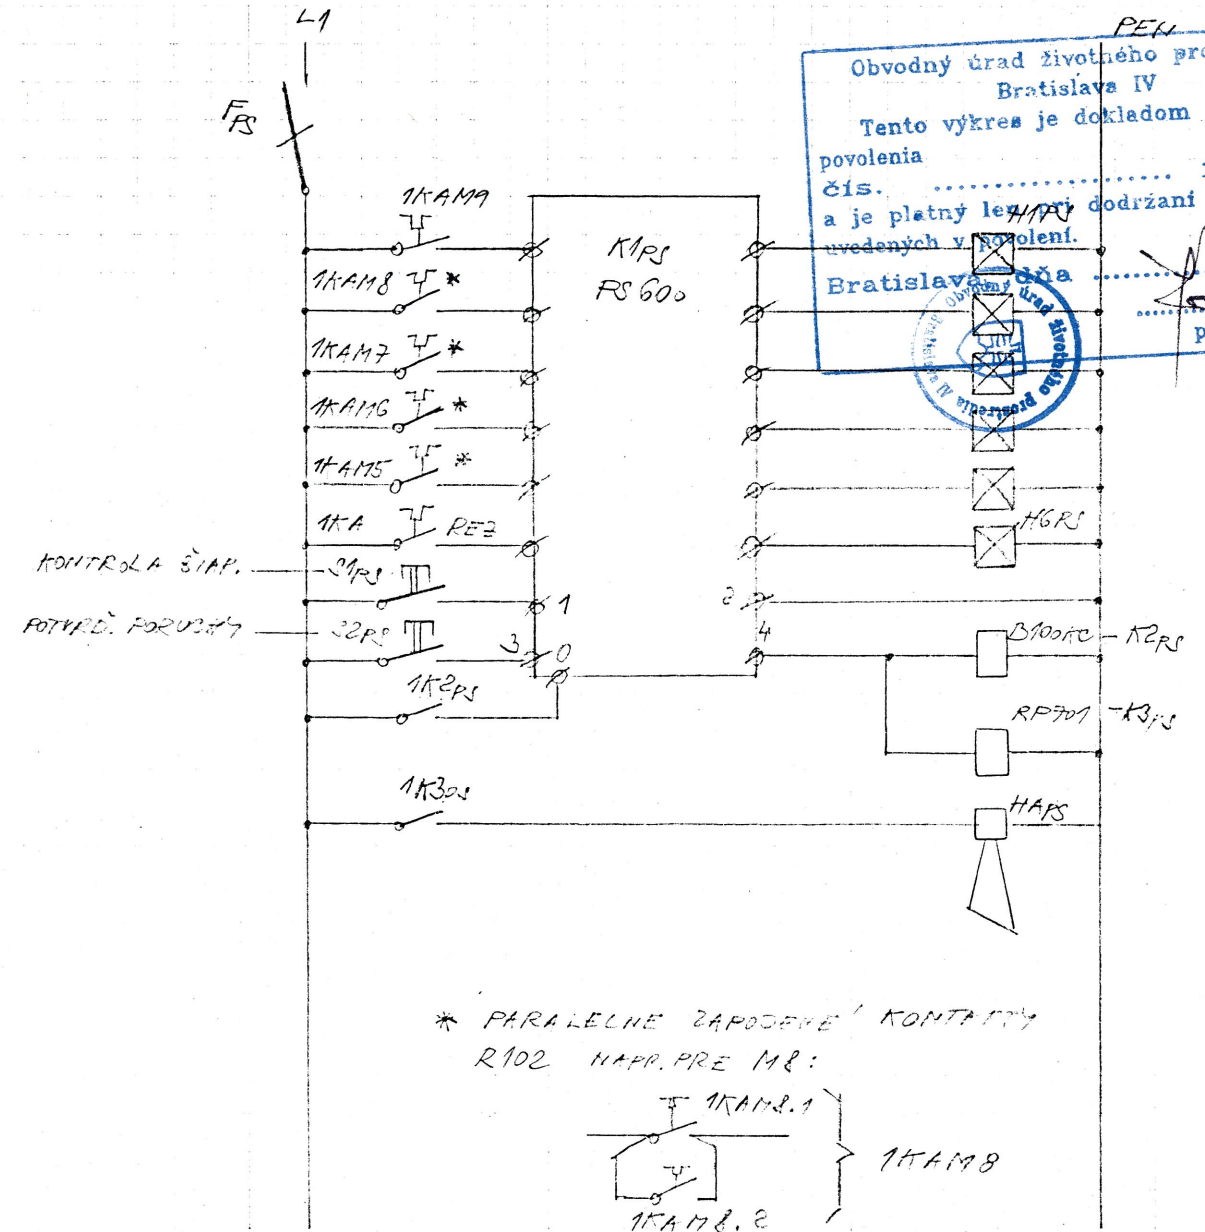 L1
PEN
Obvodný úrad životného pro
Bratislava IV
Tento výkres je dokladom
povolenia
čís. ....................
a je platný len pri dodržaní
uvedených v povolení.
Bratislava dňa ............
Obvodný úrad životného prostredia
Bratislava IV
FPS
1KAM9
K1PS
PS 600
H1PS
1KAM8 *
1KAM7 *
1KAM6 *
1KAM5 *
1KA REZ
H6PS
KONTROLA SIAP.
S1PS
1
2
POTVRD. PORUCHY
S2PS
3
0
4
B100KC - K2PS
1K2PS
RP701 - K3PS
1K3PS
HAPS
* PARALELNE ZAPOJENÉ KONTAKTY
R102 NAPR. PRE M8:
1KAM8.1
1KAM8
1KAM8.2